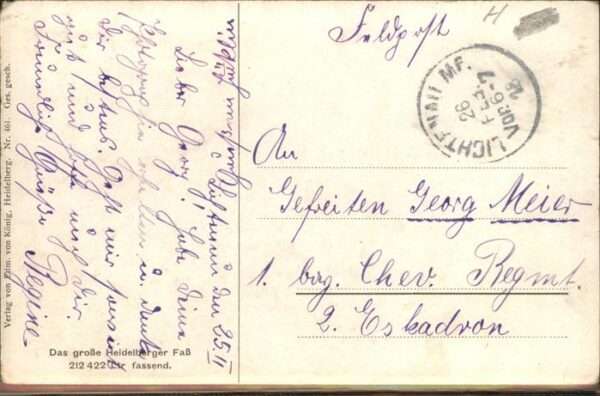 Feldpost
H
LICHTENAU MF.
26
FEB
VOR. 6-7
An
Gefreiten Georg Meier
1. bay. Chev. Regmt.
2. Eskadron
Lichtenau den 25.II
Lieber Georg! Habe Deine
Photographie erhalten u. danke
Dir bestens. Geht mir soweit
gut und hoffe auch Dir.
Freundliche Grüße
Regine
Das große Heidelberger Faß
212 422 Ltr fassend.
Verlag von Edm. von König, Heidelberg. Nr. 461. Ges. gesch.